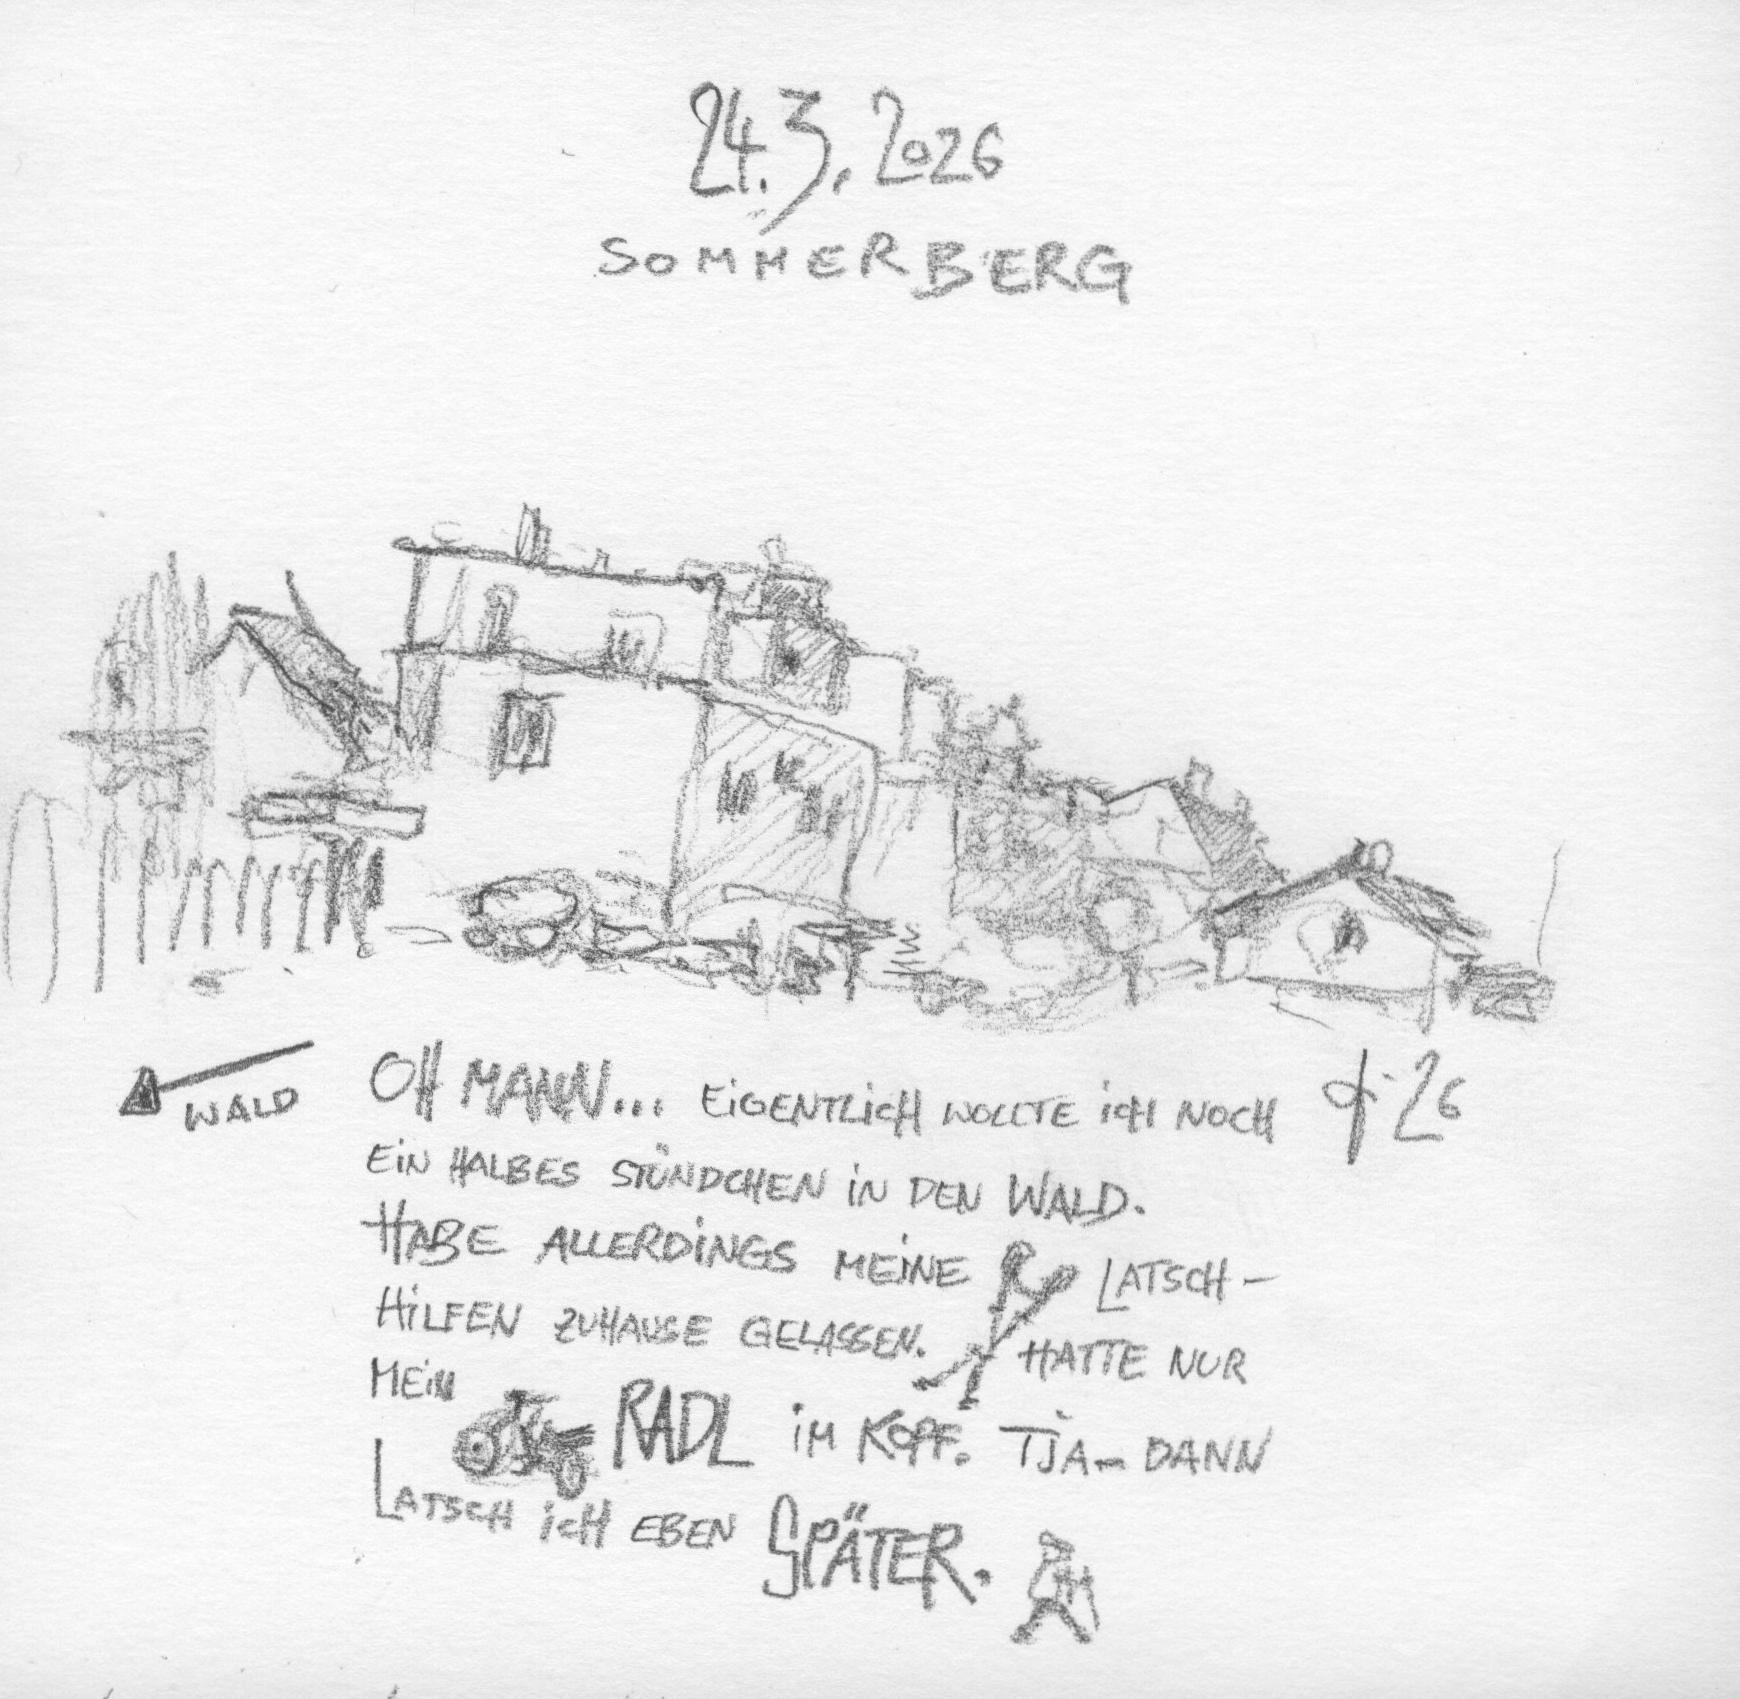 24.3.2026
SOMMERBERG
WALD
OH MANN... EIGENTLICH WOLLTE ICH NOCH
EIN HALBES STÜNDCHEN IN DEN WALD.
HABE ALLERDINGS MEINE LATSCH-
HILFEN ZUHAUSE GELASSEN. HATTE NUR
MEIN RADL IM KOPF. TJA - DANN
LATSCH ICH EBEN SPÄTER.
26